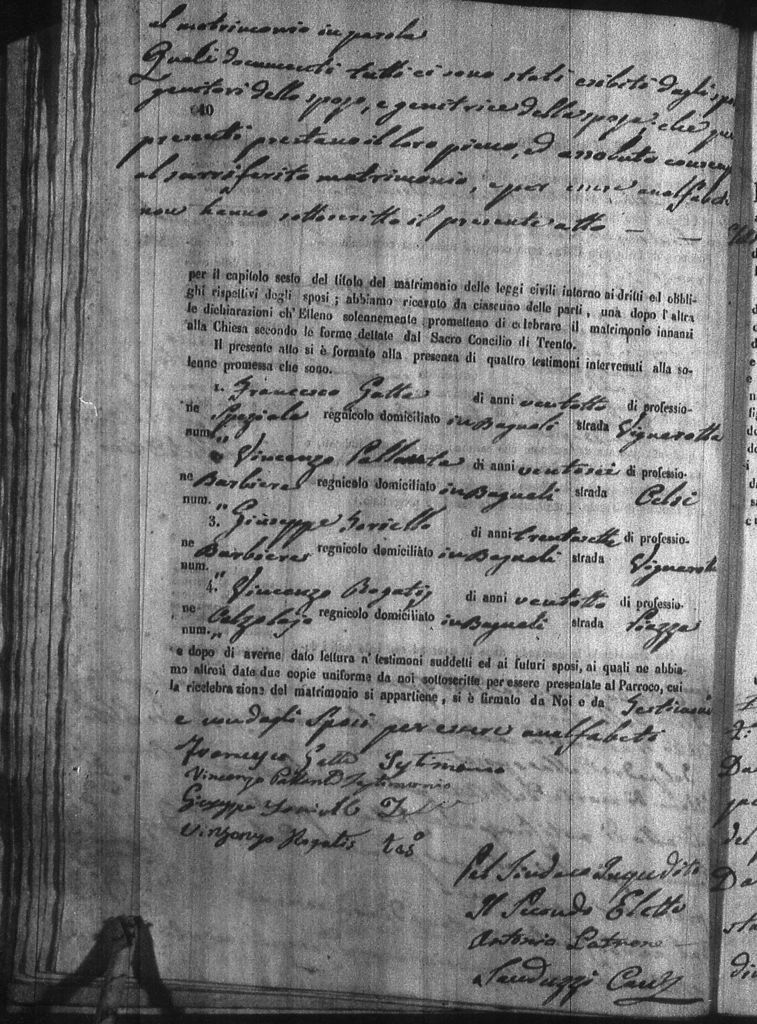 al matrimonio in parola
Quali documenti tutti ci sono stati esibiti dagli
genitori dello sposo, e genitrice della sposa che
40
presenti prestano il loro pieno, ed assoluto
al surriferito matrimonio, e per essere analfabeti
non hanno sottoscritto il presente atto — —
per il capitolo sesto del titolo del matrimonio delle leggi civili intorno ai dritti ed obbli-
ghi rispettivi degli sposi; abbiamo ricevuto da ciascuno delle parti, una dopo l'altra
le dichiarazioni ch'Elleno solennemente promettono di celebrare il matrimonio innanzi
alla Chiesa secondo le forme dettate dal Sacro Concilio di Trento.
Il presente atto si è formato alla presenza di quattro testimoni intervenuti alla so-
lenne promessa che sono.
1. Francesco Gatta di anni ventotto di professio-
ne Speziale regnicolo domiciliato in Bagnoli strada Vignarotta
num. "
Vincenzo di anni ventisei di professio-
ne Barbiere regnicolo domiciliato in Bagnoli strada Celsi
num. "
3. Giuseppe di anni trentasette di professio-
ne Barbiere regnicolo domiciliato in Bagnoli strada
num. "
4. Vincenzo Rogatis di anni ventotto di professio-
ne Calzolajo regnicolo domiciliato in Bagnoli strada Piazza
num. "
e dopo di averne dato lettura a' testimoni suddetti ed ai futuri sposi, ai quali ne abbia-
mo altresì date due copie uniforme da noi sottoscritte per essere presentate al Parroco, cui
la ricelebrazione del matrimonio si appartiene, si è firmato da Noi e da Testimoni
e non dagli Sposi per essere analfabeti
Francesco Gatta Tystimonio
Vincenzo Tystimonio
Giuseppe
Vinzenzo Rogatis
Pel Sindaco Inpedito
Il Secondo Eletto
Antonio Patrone
Sanduzzi Canc